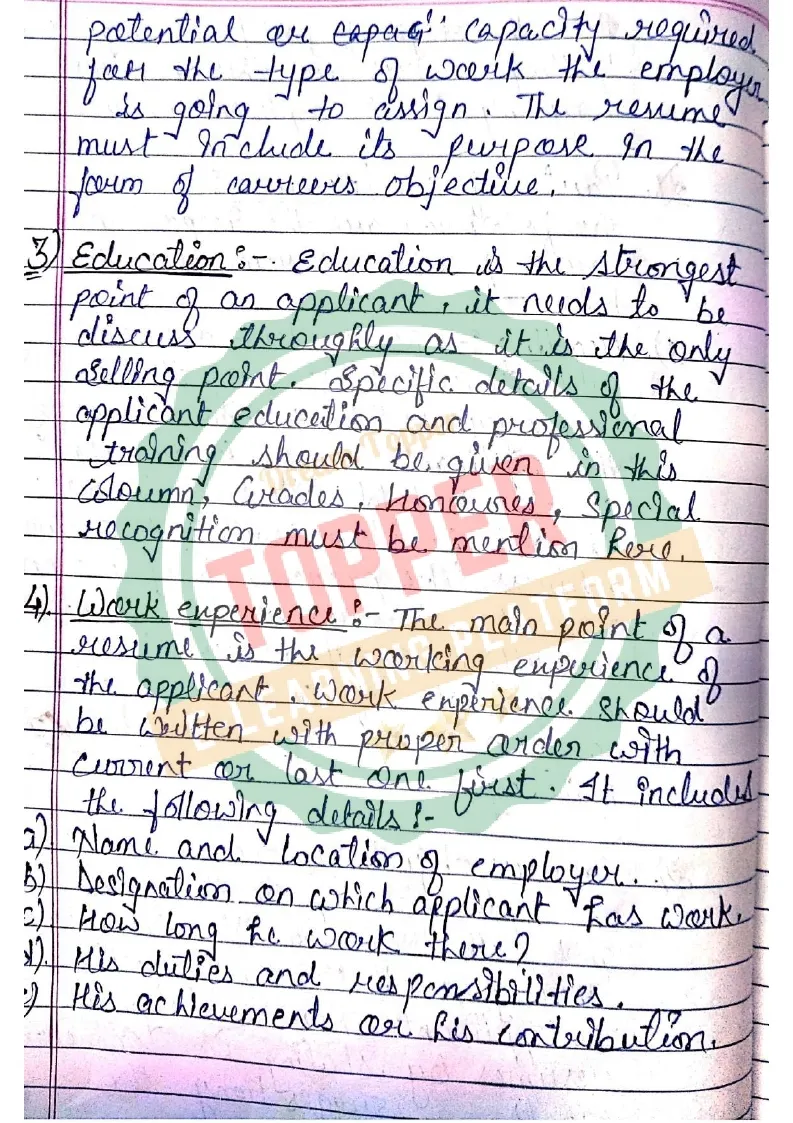 potential or capaci capacity required
for the type of work the employer
is going to assign. The resume
must include its purpose in the
form of carreers objective.
3) Education :- Education is the strongest
point of an applicant, it needs to be
discuss throughly as it is the only
selling point. Specific details of the
applicant education and professional
training should be given in this
coloumn, Grades, Honours, Special
recognition must be mention here.
4). Work experience :- The main point of a
resume is the working experience of
the applicant. Work experience should
be written with proper order with
current or last one first. It includes
the following details :-
a) Name and location of employer.
b) Designation on which applicant has work.
c) How long he work there?
d). His duties and responsibilities.
e) His achievements or his contribution.
TOPPER
E-LEARNING PLATFORM